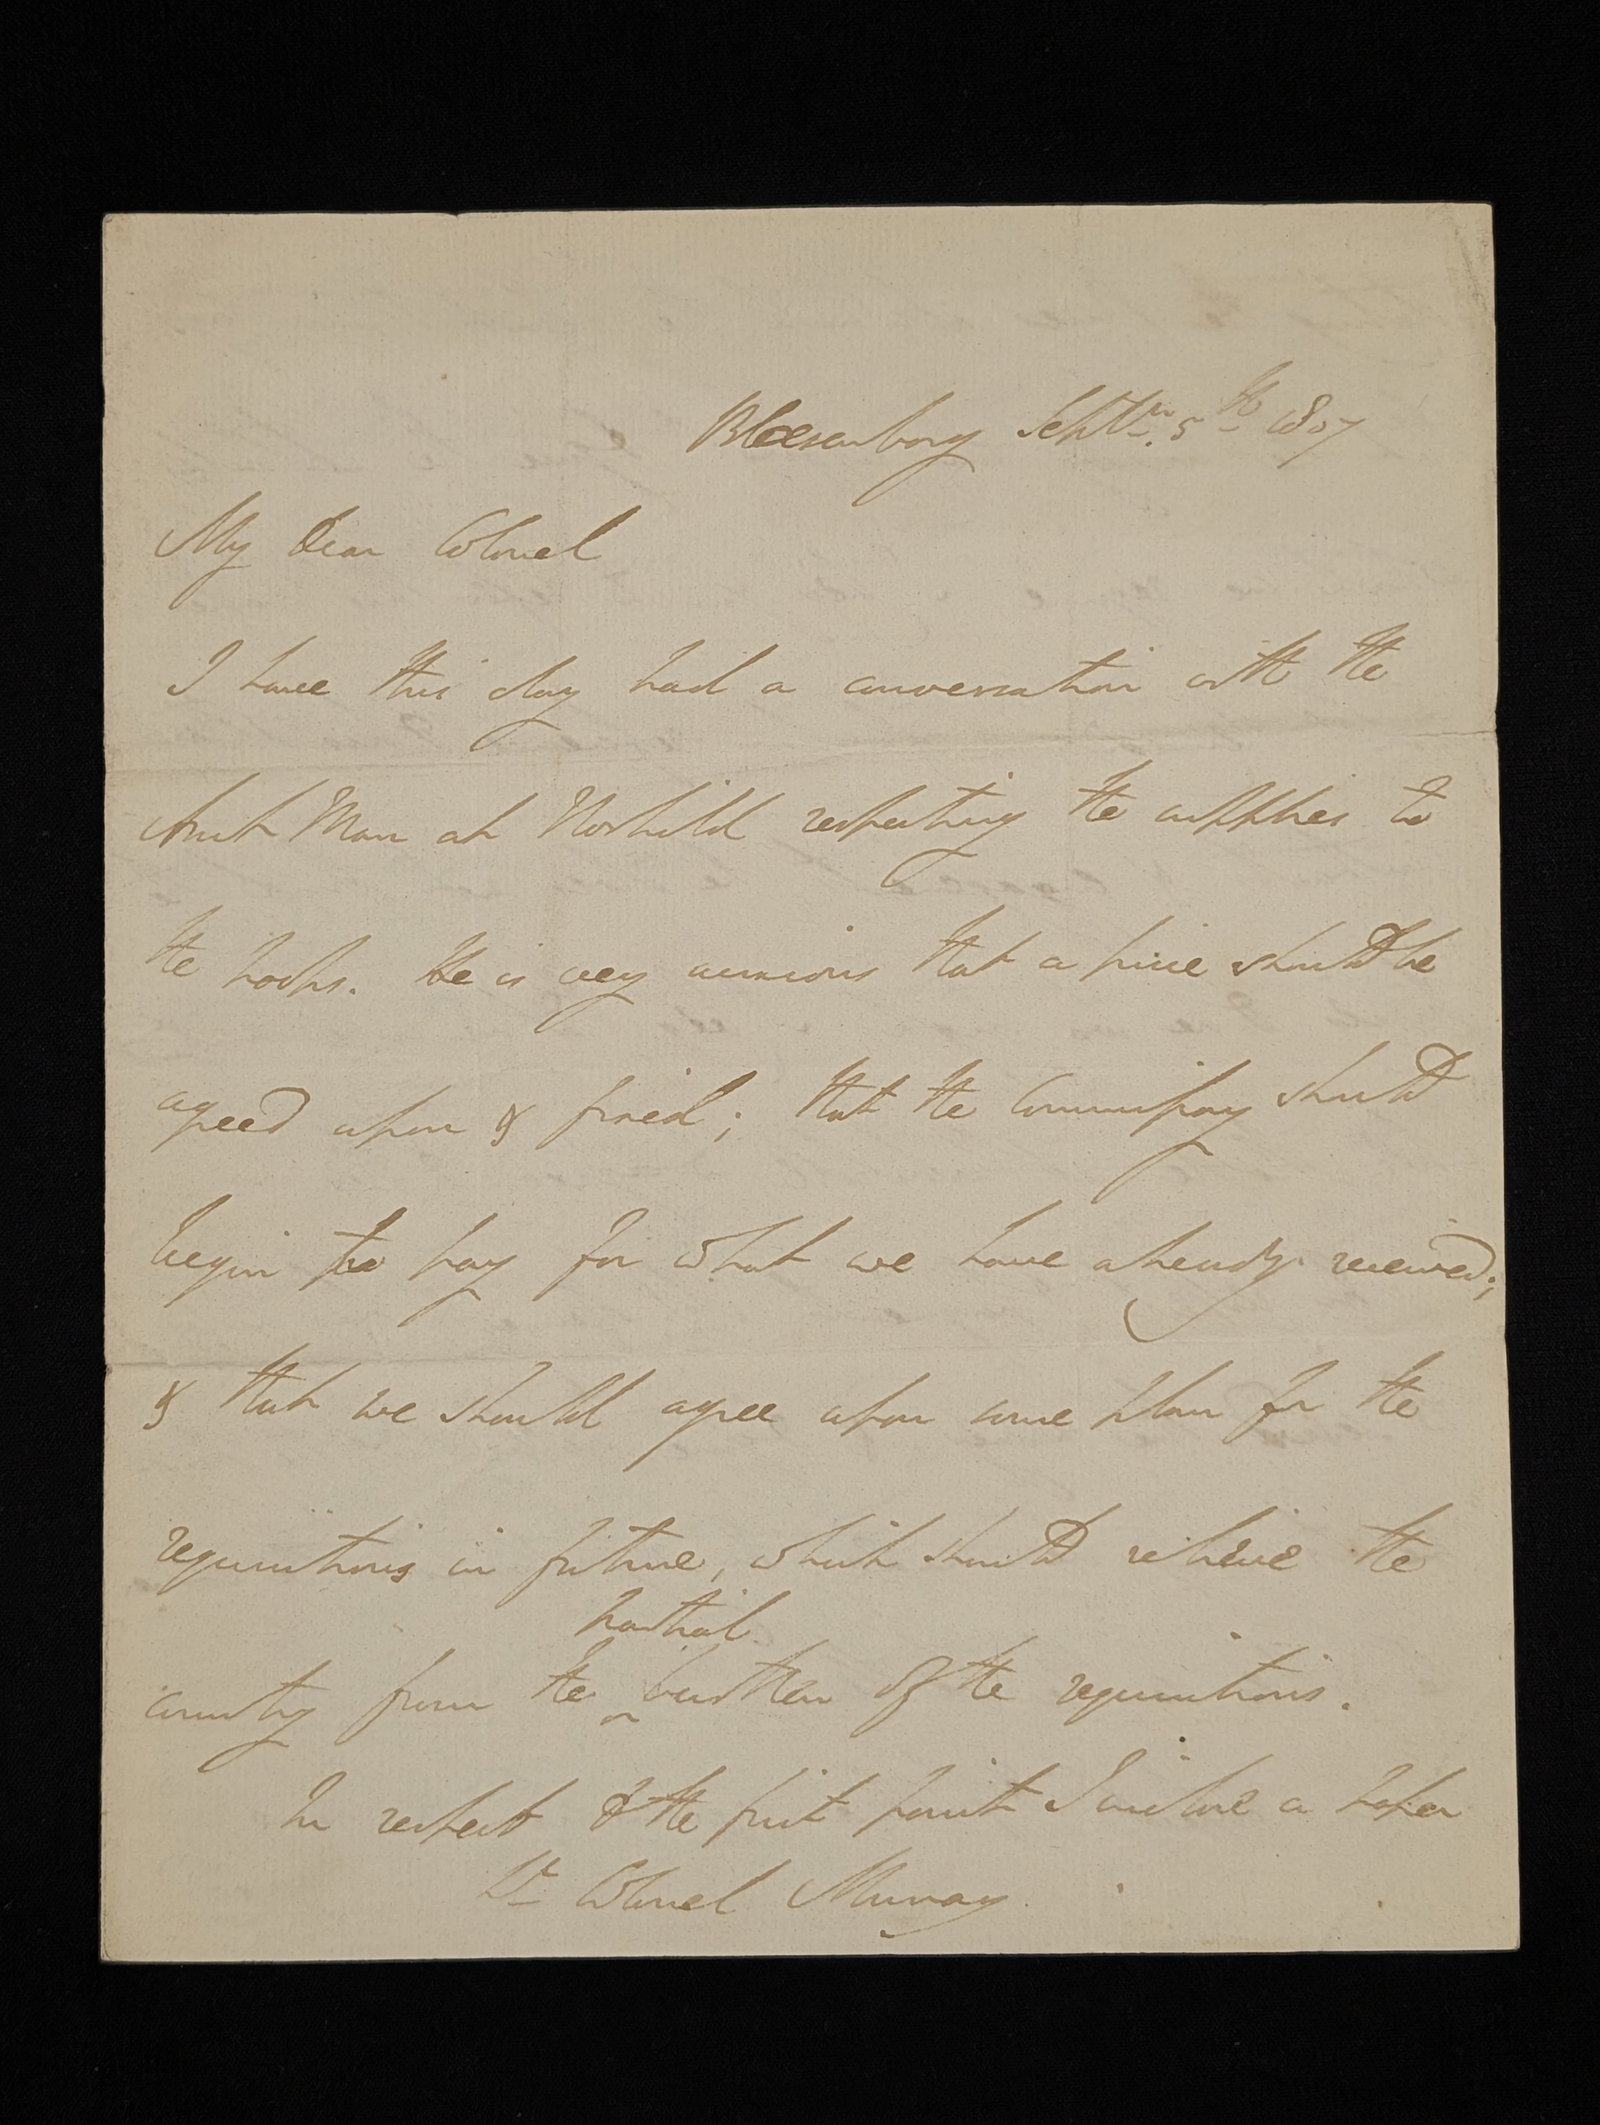 Bloesenborg Septr. 5th 1807
My Dear Colonel
I have this day had a conversation with the
Amt Man at Roskild respecting the supplies to
the troops. He is very anxious that a price should be
agreed upon & fixed; that the Commissary should
begin to pay for what we have already received;
& that we should agree upon some plan for the
requisitions in future, which should relieve the
partial
country from the burthen of the requisitions.
In respect to the first point I enclose a paper
Lt Colonel Murray